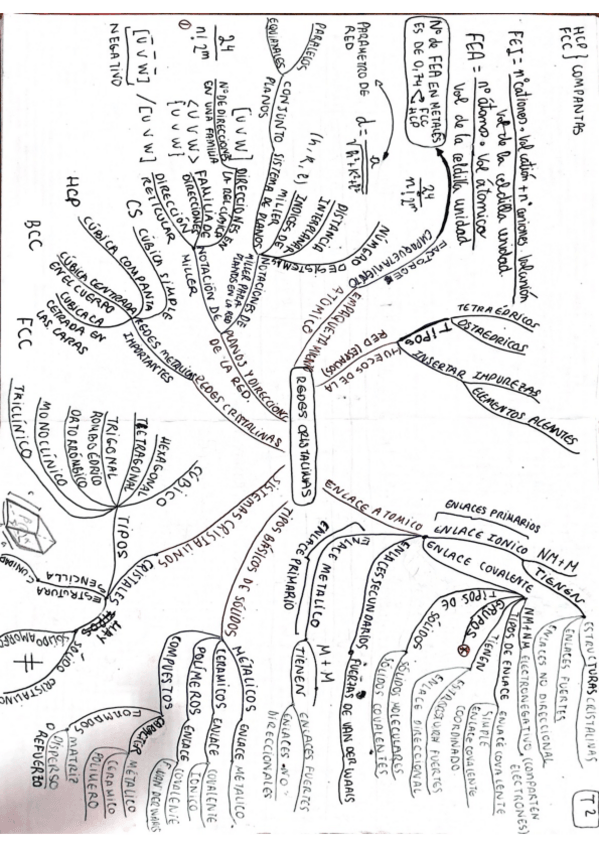 T2
REDES CRISTALINAS
ENLACE ATOMICO
ENLACES PRIMARIOS
ENLACE IONICO
NM+M
TIENEN
ESTRUCTURAS CRISTALINAS
ENLACES FUERTES
ENLACES NO DIRECCIONAL
ENLACE COVALENTE
NM+NM ELECTRONEGATIVO (COMPARTEN
ELECTRONES)
TIPOS DE ENLACE
ENLACE COVALENTE
SIMPLE
ENLACE COVALENTE
COORDINADO
GRUPOS
TIENEN
ESTRUCTURA FUERTES
ENLACE DIRECCIONAL
TIPOS DE
SÓLIDOS
SÓLIDOS MOLECULARES
SÓLIDOS COVALENTES
ENLACES SECUNDARIOS
FUERZAS DE VAN DER WAALS
ENLACE METALICO
ENLACE PRIMARIO
M+M
TIENEN
ENLACES FUERTES
ENLACES NO-
DIRECCIONALES
TIPOS BASICOS DE SÓLIDOS
METALICOS
ENLACE METALICO
CERAMICOS
ENLACE
COVALENTE
IONICO
POLÍMEROS
ENLACE
COVALENTE
COMPUESTOS
FORMADOS
METALICO
CERAMICO
POLIMERO
MATRIZ
O DISPERSO
REFUERZO
SISTEMAS CRISTALINOS
CRISTALES
SÓLIDO CRISTALINO
≠
ESTRUCTURA
SENCILLA
TIPOS
CÚBICO
HEXAGONAL
TETRAGONAL
TRIGONAL
ROMBOEDRICO
ORTORRÓMBICO
MONOCLÍNICO
TRICLÍNICO
REDES CRISTALINAS
REDES METALICAS
IMPORTANTES
CS
CÚBICA SIMPLE
CÚBICA COMPACTA
HCP
CÚBICA CENTRADA
EN EL CUERPO
BCC
CÚBICA
CETRADA EN
LAS CAPAS
FCC
PLANOS Y DIRECCIONES
DE LA RED.
NOTACIÓN DE
MILLER
DIRECCIONES
EN
[U V W]
FAMILIA DE
DIRECCIONES
<U V W>
Nº DE DIRECCIONES
EN UNA FAMILIA
24
n! 2^m
DIRECCIÓN
RETICULAR
[U V W] / [U V W]
NEGATIVO
NOTACIONES DE
MILLER PARA
PLANOS EN LA RED
INDICES DE
MILLER
(h, k, l)
SISTEMA DE PLANOS
CONJUNTO
PLANOS
PARALELOS
EQUIVALES
DISTANCIA
INTERPLANAR
d = a / √h²+k²+l²
PARAMETRO DE
RED
24
n! 2^m
EMPAQUETAMIENTO
ATOMICO
FACTOR DE
EMPAQUETAMIENTO
FEA = nº átomo · Vol átomico / Vol de la celdilla unidad
FEI = nº cationes · Vol catión + nº aniones Vol anión / Vol de la celdilla unidad
Nº de FEA EN METALES
ES DE 0,74
FCC
HCP
HCP
FCC } COMPANTAS
HUECOS DE LA
RED (ESPACIOS)
TIPOS
TETRAEDRICOS
OSTAEDRICOS
INSERTAR IMPUREZAS
ELEMENTOS ALEANTES